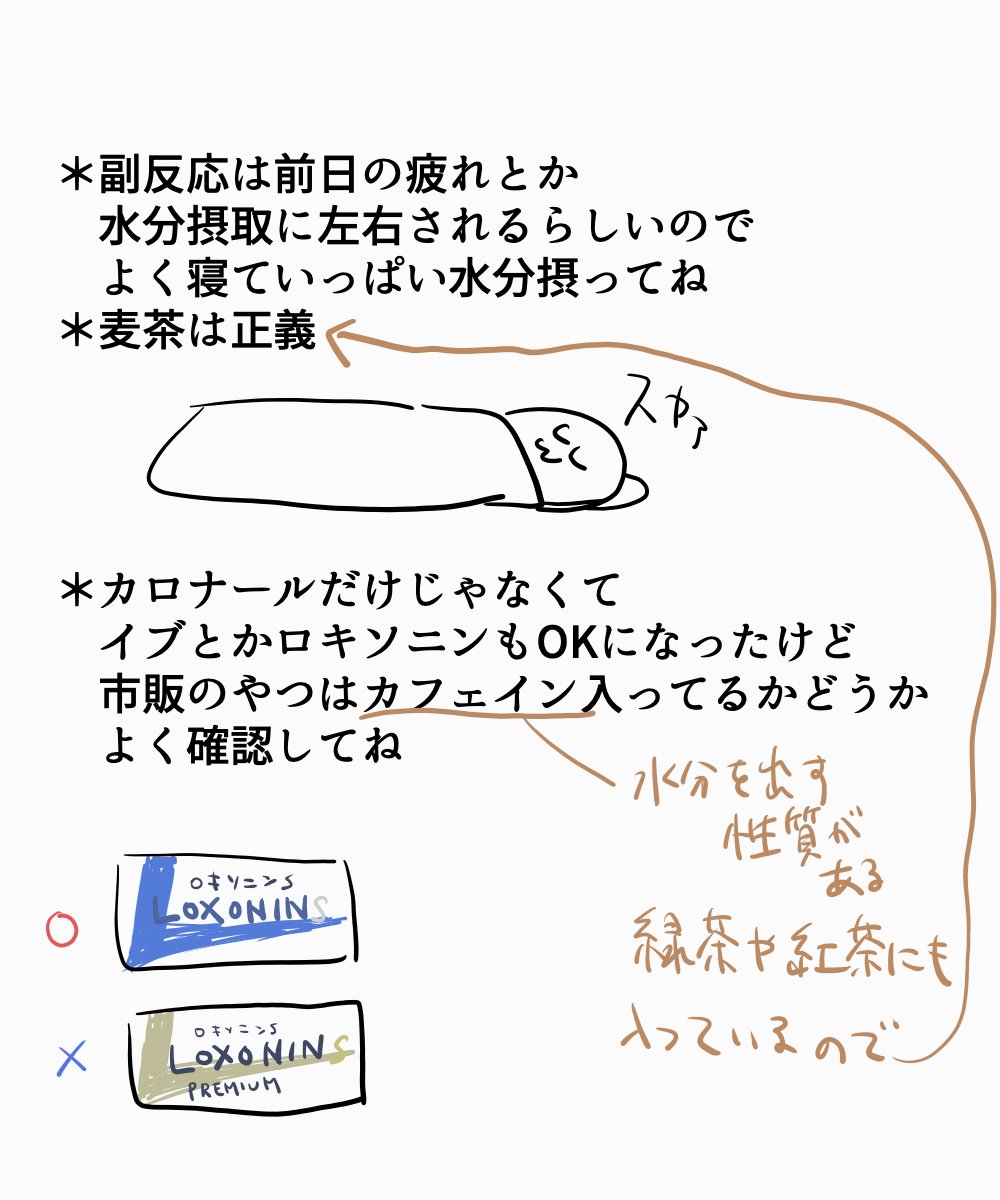 ＊副反応は前日の疲れとか
水分摂取に左右されるらしいので
よく寝ていっぱい水分摂ってね
＊麦茶は正義
スカァ
＊カロナールだけじゃなくて
イブとかロキソニンもOKになったけど
市販のやつはカフェイン入ってるかどうか
よく確認してね
水分を出す
性質が
ある
緑茶や紅茶にも
入っているので
○
ロキソニンS
LOXONINS
×
ロキソニンS
LOXONINS
PREMIUM